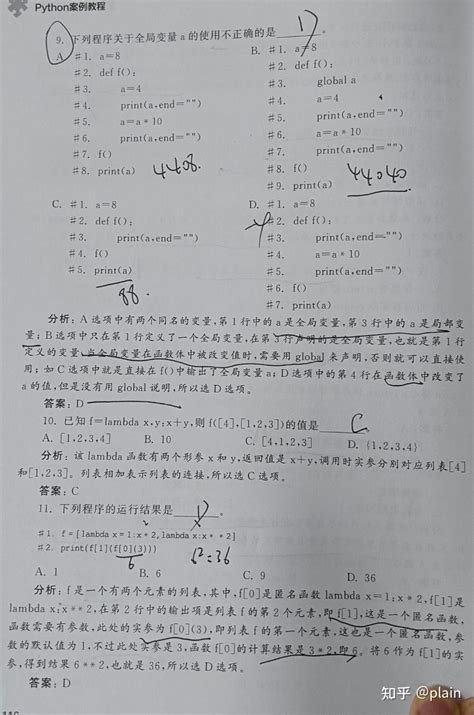 Python案例教程
9. 下列程序关于全局变量 a 的使用不正确的是 D 。
A. #1. a=8
#2. def f():
#3. a=4
#4. print(a,end="")
#5. a=a*10
#6. print(a,end="")
#7. f()
#8. print(a) 4408.
B. #1. a=8
#2. def f():
#3. global a
#4. a=4
#5. print(a,end="")
#6. a=a*10
#7. print(a,end="")
#8. f()
#9. print(a) 44040
C. #1. a=8
#2. def f():
#3. print(a,end="")
#4. f()
#5. print(a)
88.
D. #1. a=8
#2. def f():
#3. print(a,end="")
#4. a=a*10
#5. print(a,end="")
#6. f()
#7. print(a)
分析：A 选项中有两个同名的变量,第 1 行中的 a 是全局变量,第 3 行中的 a 是局部变
量；B 选项中只在第 1 行定义了一个全局变量,在第 3 行声明的是全局变量,也就是第 1 行
定义的变量,当全局变量在函数体中被改变值时,需要用 global 来声明,否则就可以直接使
用；如 C 选项中就是直接在 f()中输出了全局变量 a；D 选项中的第 4 行在函数体中改变了
a 的值,但是没有用 global 说明,所以选 D 选项。
答案：D
10. 已知 f=lambda x,y:x+y,则 f([4],[1,2,3])的值是 C 。
A. [1,2,3,4] B. 10 C. [4,1,2,3] D. {1,2,3,4}
分析：该 lambda 函数有两个形参 x 和 y,返回值是 x+y,调用时实参分别对应列表[4]
和[1,2,3]。列表相加表示列表的连接,所以选 C 选项。
答案：C
11. 下列程序的运行结果是 D 。
#1. f=[lambda x=1:x*2,lambda x:x**2]
#2. print(f[1](f[0](3)))
6 6²=36
A. 1 B. 6 C. 9 D. 36
分析：f 是一个有两个元素的列表,其中,f[0]是匿名函数 lambda x=1:x*2,f[1]是
lambda x:x**2,在第 2 行中的输出项是列表 f 的第 2 个元素,即 f[1],这是一个匿名函数,
函数需要有参数,此处的实参为 f[0](3),即列表 f 的第一个元素,这也是一个匿名函数,参
数的默认值为 1,不过此处实参是 3,函数 f[0]的计算结果是 3*2,即 6。将 6 作为 f[1]的实
参,得到结果 6**2,也就是 36,所以选 D 选项。
答案：D
116
知乎 @plain